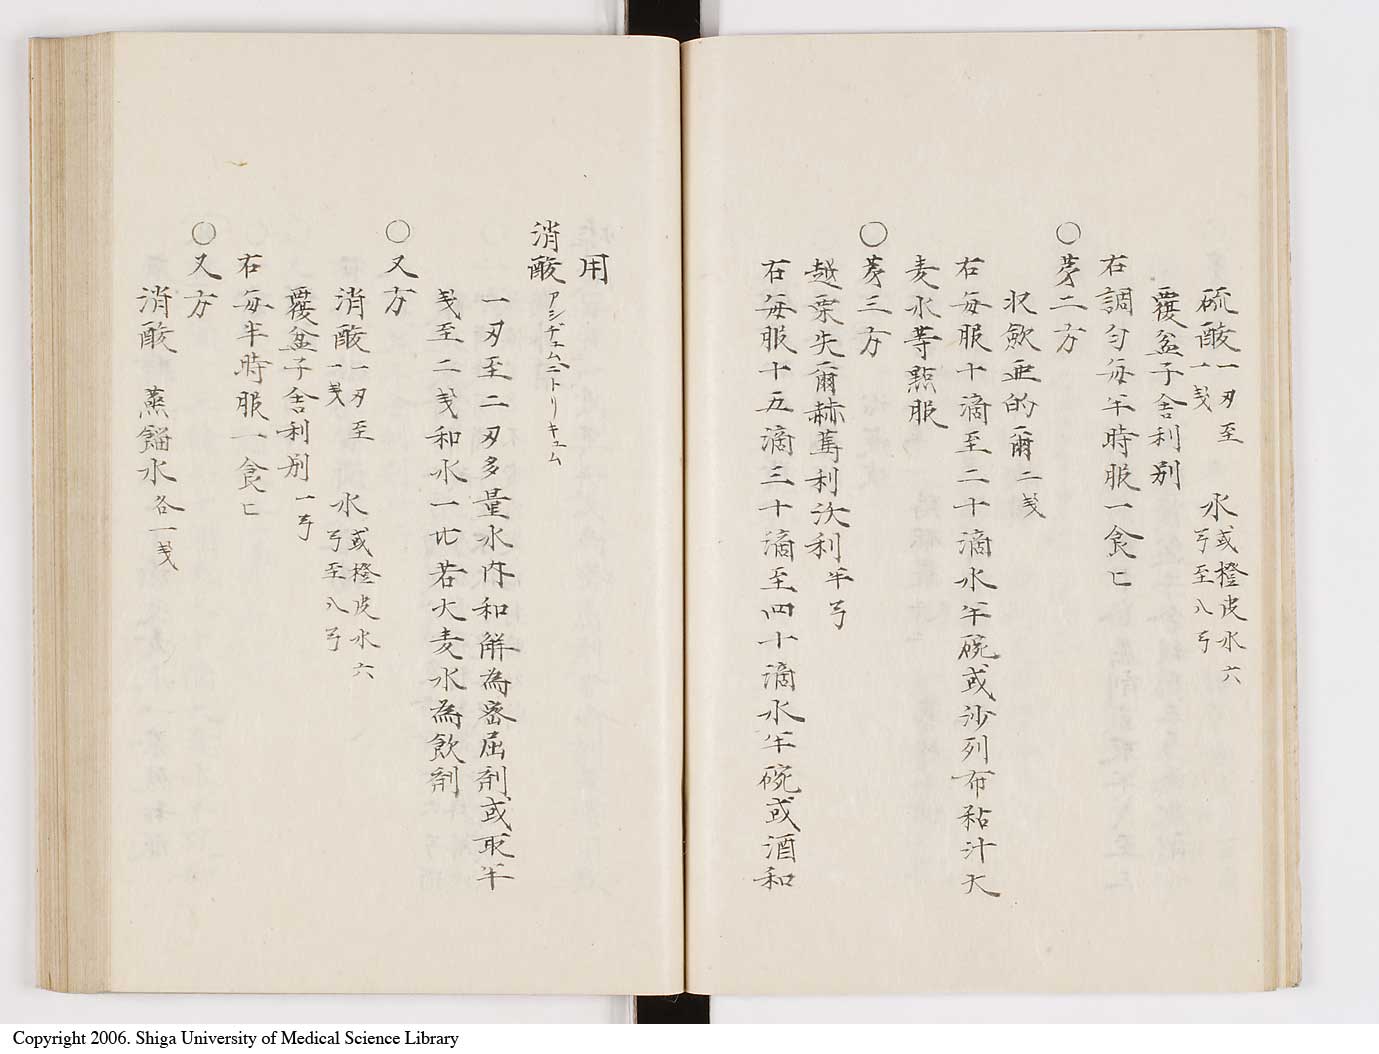 硫酸 一刄至一戔 水 或橙皮水六弓至八弓
覆盆子舎利别
右調匀毎半時服一食匕
〇第二方
収歛亜的爾 二戔
右毎服十滴至二十滴水半碗或沙列布粘汁大
麦水等點服
〇第三方
越栗失爾赫葛利沃利 半弓
右毎服十五滴三十滴至四十滴水半碗或酒和
用
消酸 アシヂュムニトリキュム
一刄至二刄多量水内和觧為密屈剤或取半
戔至二戔和水一ヒ若大麦水為飲剤
〇又方
消酸 一刄至一戔 水 或橙皮水六弓至八弓
覆盆子舎利别 一弓
右毎半時服一食匕
〇又方
消酸 蒸餾水 各一戔
Copyright 2006. Shiga University of Medical Science Library